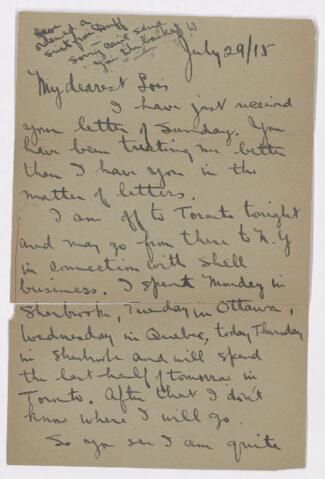 sorry can't send
you the basket
July 29/15
My dearest Lois
I have just received
your letter of Sunday. You
have been treating me better
than I have you in the
matter of letters.
I am off to Toronto tonight
and may go from there to N.Y
in connection with Shell
business. I spent Monday in
Sherbrooke, Tuesday in Ottawa,
Wednesday in Quebec, today Thursday
in Sherbrooke and will spend
the last half of tomorrow in
Toronto. After that I don't
know where I will go.
So you see I am quite